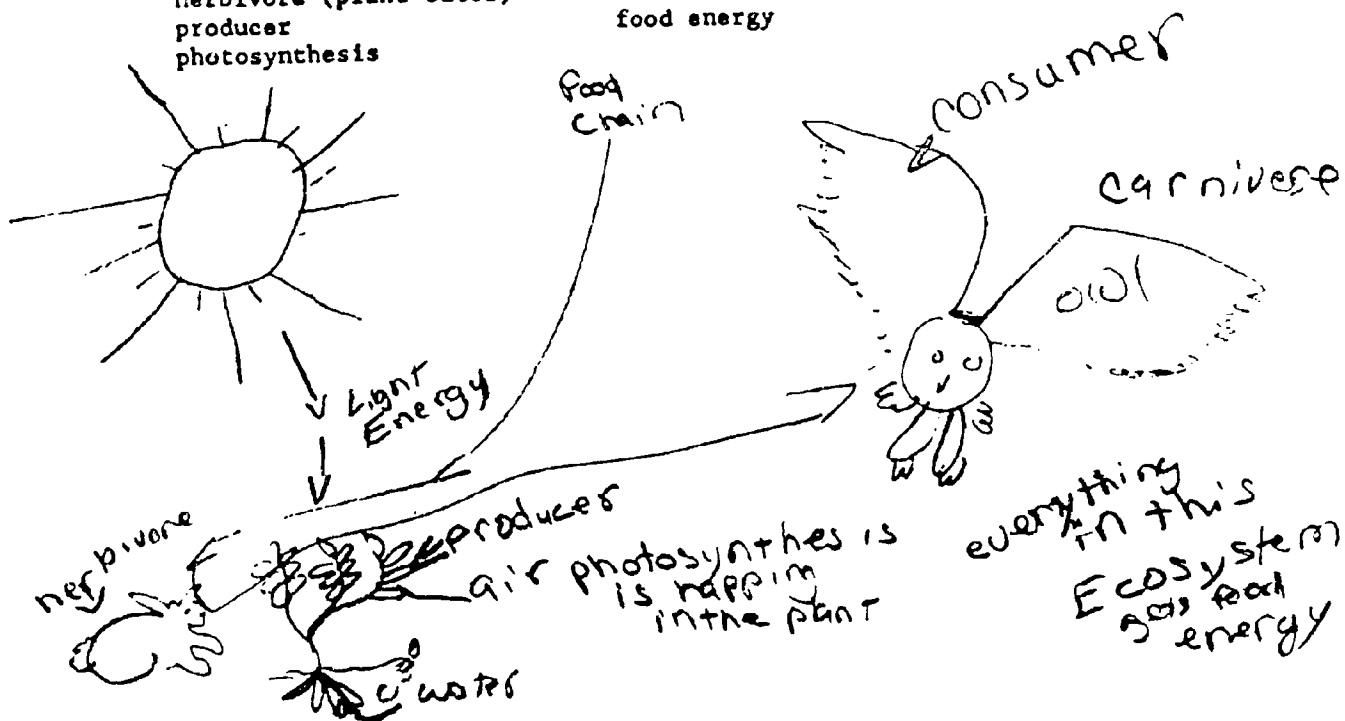 herbivore (plant eater)
producer
photosynthesis
food energy
food
chain
consumer
carnivere
owl
Light
Energy
herbivore
producer
air photosynthes is
is happin
in the plant
water
everything
in this
Ecosystem
food
energy